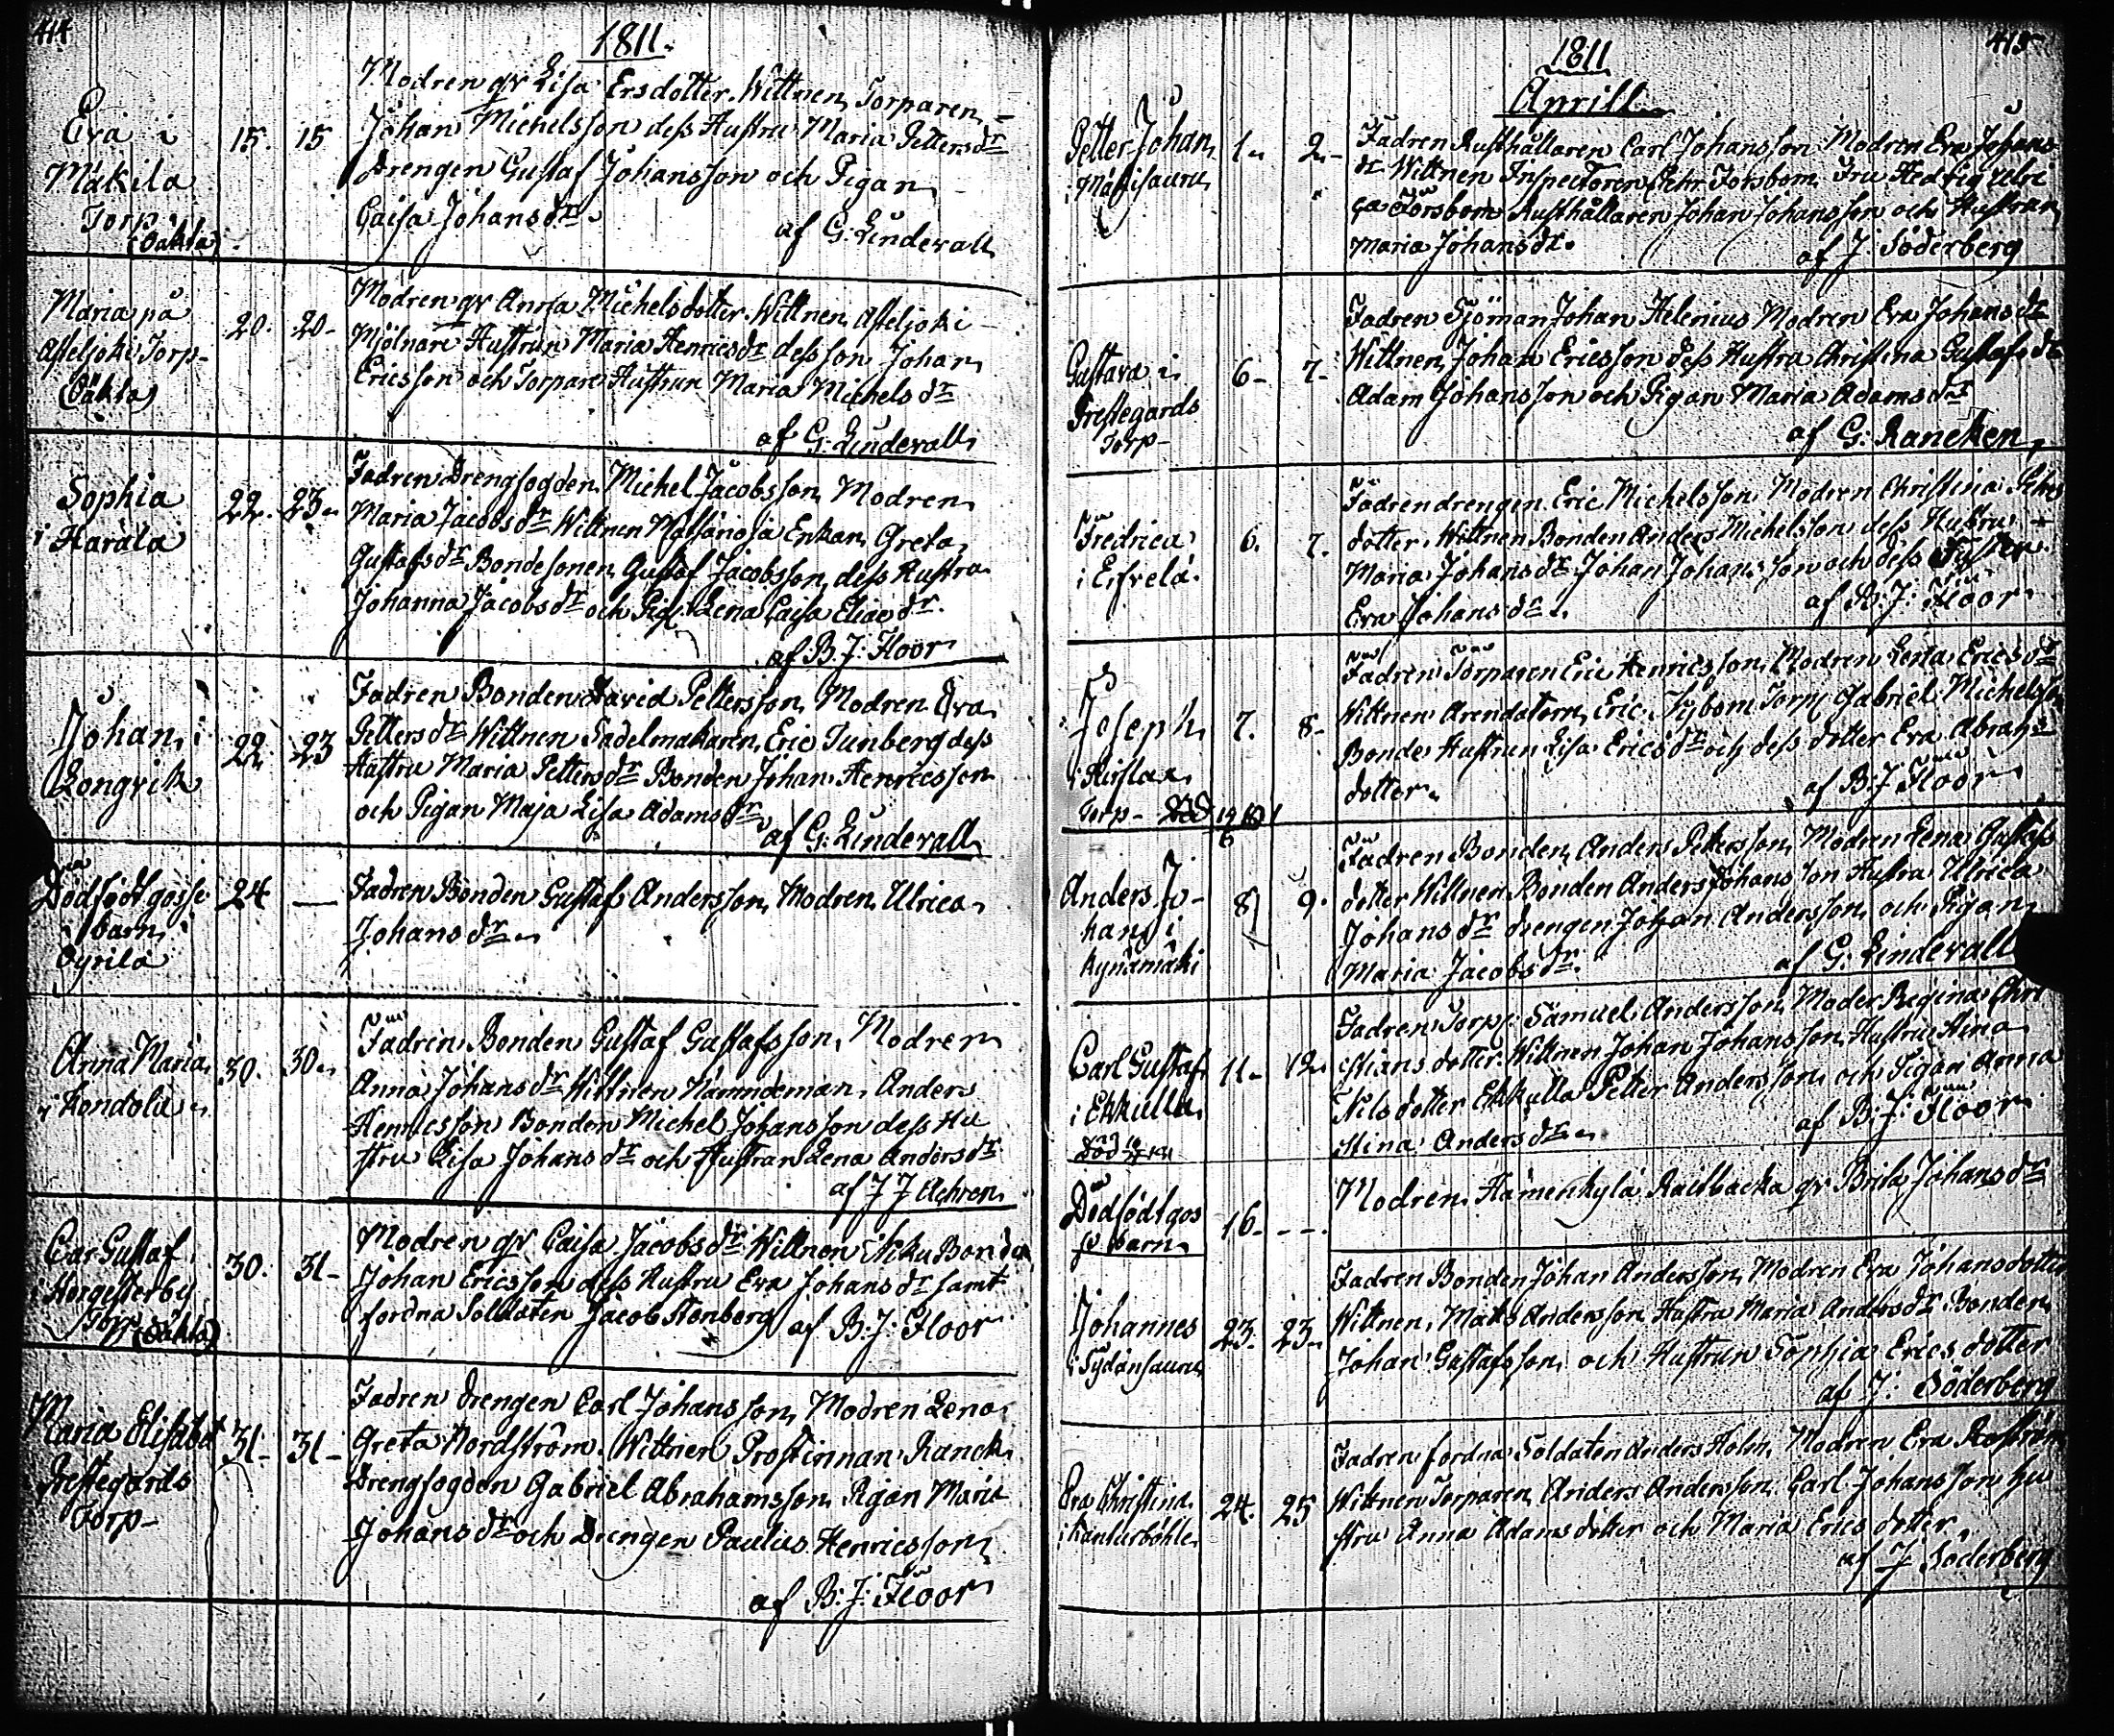 414
1811.
Eva i
Mäkilä
Torp
(Oäkta)
15. 15
Modren qv Lisa Ersdotter. Wittnen, Torparen
Johan Michelsson dess Hustru Maria Pettersdr
drengen Gustaf Johansson och Pigan
Caisa Johansdr
af G: Lindevall
Maria på
Torp
(Oäkta)
20. 20
Modren qv Anna Michelsdotter. Wittnen
Mjölnare Hustrun Maria Henricsdr dess son Johan
Ericsson och Torpare Hustrun Maria Michelsdr
af G: Lindevall
Sophia
i Harala
22. 23
Fadren Drengfogden Michel Jacobsson Modren
Maria Jacobsdr Wittnen Enkan Greta
Gustafsdr Bondesonen Gustaf Jacobsson, dess Hustru
Johanna Jacobsdr och Pig. Lena Caisa Eliaedr
af B. J: Floor
Johan i
Långvik
22. 23
Fadren Bonden David Pettersson, Modren Eva
Pettersdr Wittnen Sadelmakaren Eric Tunberg dess
Hustru Maria Pettersdr Bonden Johan Henricsson
och Pigan Maja Lisa Adamsdr
af G: Lindevall
Dödfödt gosse
barn i
Oyrilä
24 —
Fadren Bonden Gustaf Andersson, Modren Ulrica
Johansdr
Anna Maria
i Kondola
30. 30
Fadren Bonden Gustaf Gustafsson, Modren
Anna Johansdr Wittnen Nämndeman, Anders
Henricsson Bonden Michel Johansson dess Hu
stru Lisa Johansdr och Hustrun Lena Andersdr
af J J
Car Gustaf
i Hergesterby
Torp (Oäkta)
30. 31
Modren qv Caisa Jacobsdr Wittnen Bonden
Johan Ericsson dess Hustru Eva Johansdr samt
fordna Soldaten Jacob Stenberg af B: J: Floor
Maria Elisabet
Prestegårds
Torp
31. 31
Fadren drengen Carl Johansson, Modren Lena
Greta Nordström. Wittnen Prostinnan Ranck
Drengfogden Gabriel Abrahamsson Pigan Maria
Johansdr och Drengen Paulus Henricsson
af B: J: Floor
415
1811
Aprill
Petter Johan
i Mäkisauru
1 2
Fadren Rusthållaren Carl Johansson Modren Eva Johans
dr Wittnen Inspectoren Forsbom Fru Hedvig Ulri
ca Forsbom Rusthållaren Johan Johansson och Hustrun
Maria Johansdr
af J: Söderberg
Gustava i
Prestegårds
Torp
6 7
Fadren Sjöman Johan Helenius Modren Eva Johansdr
Wittnen, Johan Ericsson dess Hustru Christina Gustafsdr
Adam Johansson och Pigan Maria Adamsdr
af G: Rancken
Fredrica
i Erfvelä
6. 7.
Fadren drengen Eric Michelsson Modren Christina Petters
dotter. Wittnen Bonden Anders Michelsson dess Hustru
Maria Johansdr Johan Johansson och dess Syster
Eva Johansdr
af B: J: Floor
Joseph
i Kirslax
Torp
7. 8
Fadren Torparen Eric Henricsson, Modren Lena Ericsdr
Wittnen Arendatorn Eric Nybom Torp. Gabriel Michelsson
Bonde Hustrun Lisa Ericsdr och dess dotter Eva Abrahs
dotter
af B: J Floor
Anders Jo-
han i
Kynämäki
8 9
Fadren Bonden, Anders Pettersson, Modren Lena Gustafs
dotter Wittnen Bonden Anders Johansson Hustru Ulrica
Johansdr drengen Johan Andersson och Pigan
Maria Jacobsdr
af G: Lindevall
Carl Gustaf
i Ekkulla
11 12
Fadren Torp: Samuel Andersson, Moder Regina Chri
stians dotter. Wittnen Johan Johansson Hustru Stina
Nilsdotter Ekkulla Petter Andersson och Pigan Anna
Stina Andersdr
af B: J: Floor
Dödfödt gos
se barn
16 —
Modren, Hämenkylä Backa qv Brita Johansdr
Johannes
i Sydänsauru
23. 23
Fadren Bonden Johan Andersson, Modren Eva Johansdotter
Wittnen, Matts Andersson Hustru Maria Andersdr Bonden
Johan Gustafsson och Hustrun Sophia Ericsdotter
af J: Söderberg
Eva Christina
i Kanturböhle
24. 25
Fadren fordna Soldaten Anders Holm, Modren Eva
Wittnen Torparen Anders Andersson, Carl Johansson hu
stru Anna Adamsdotter och Maria Ericsdotter
af J Söderberg